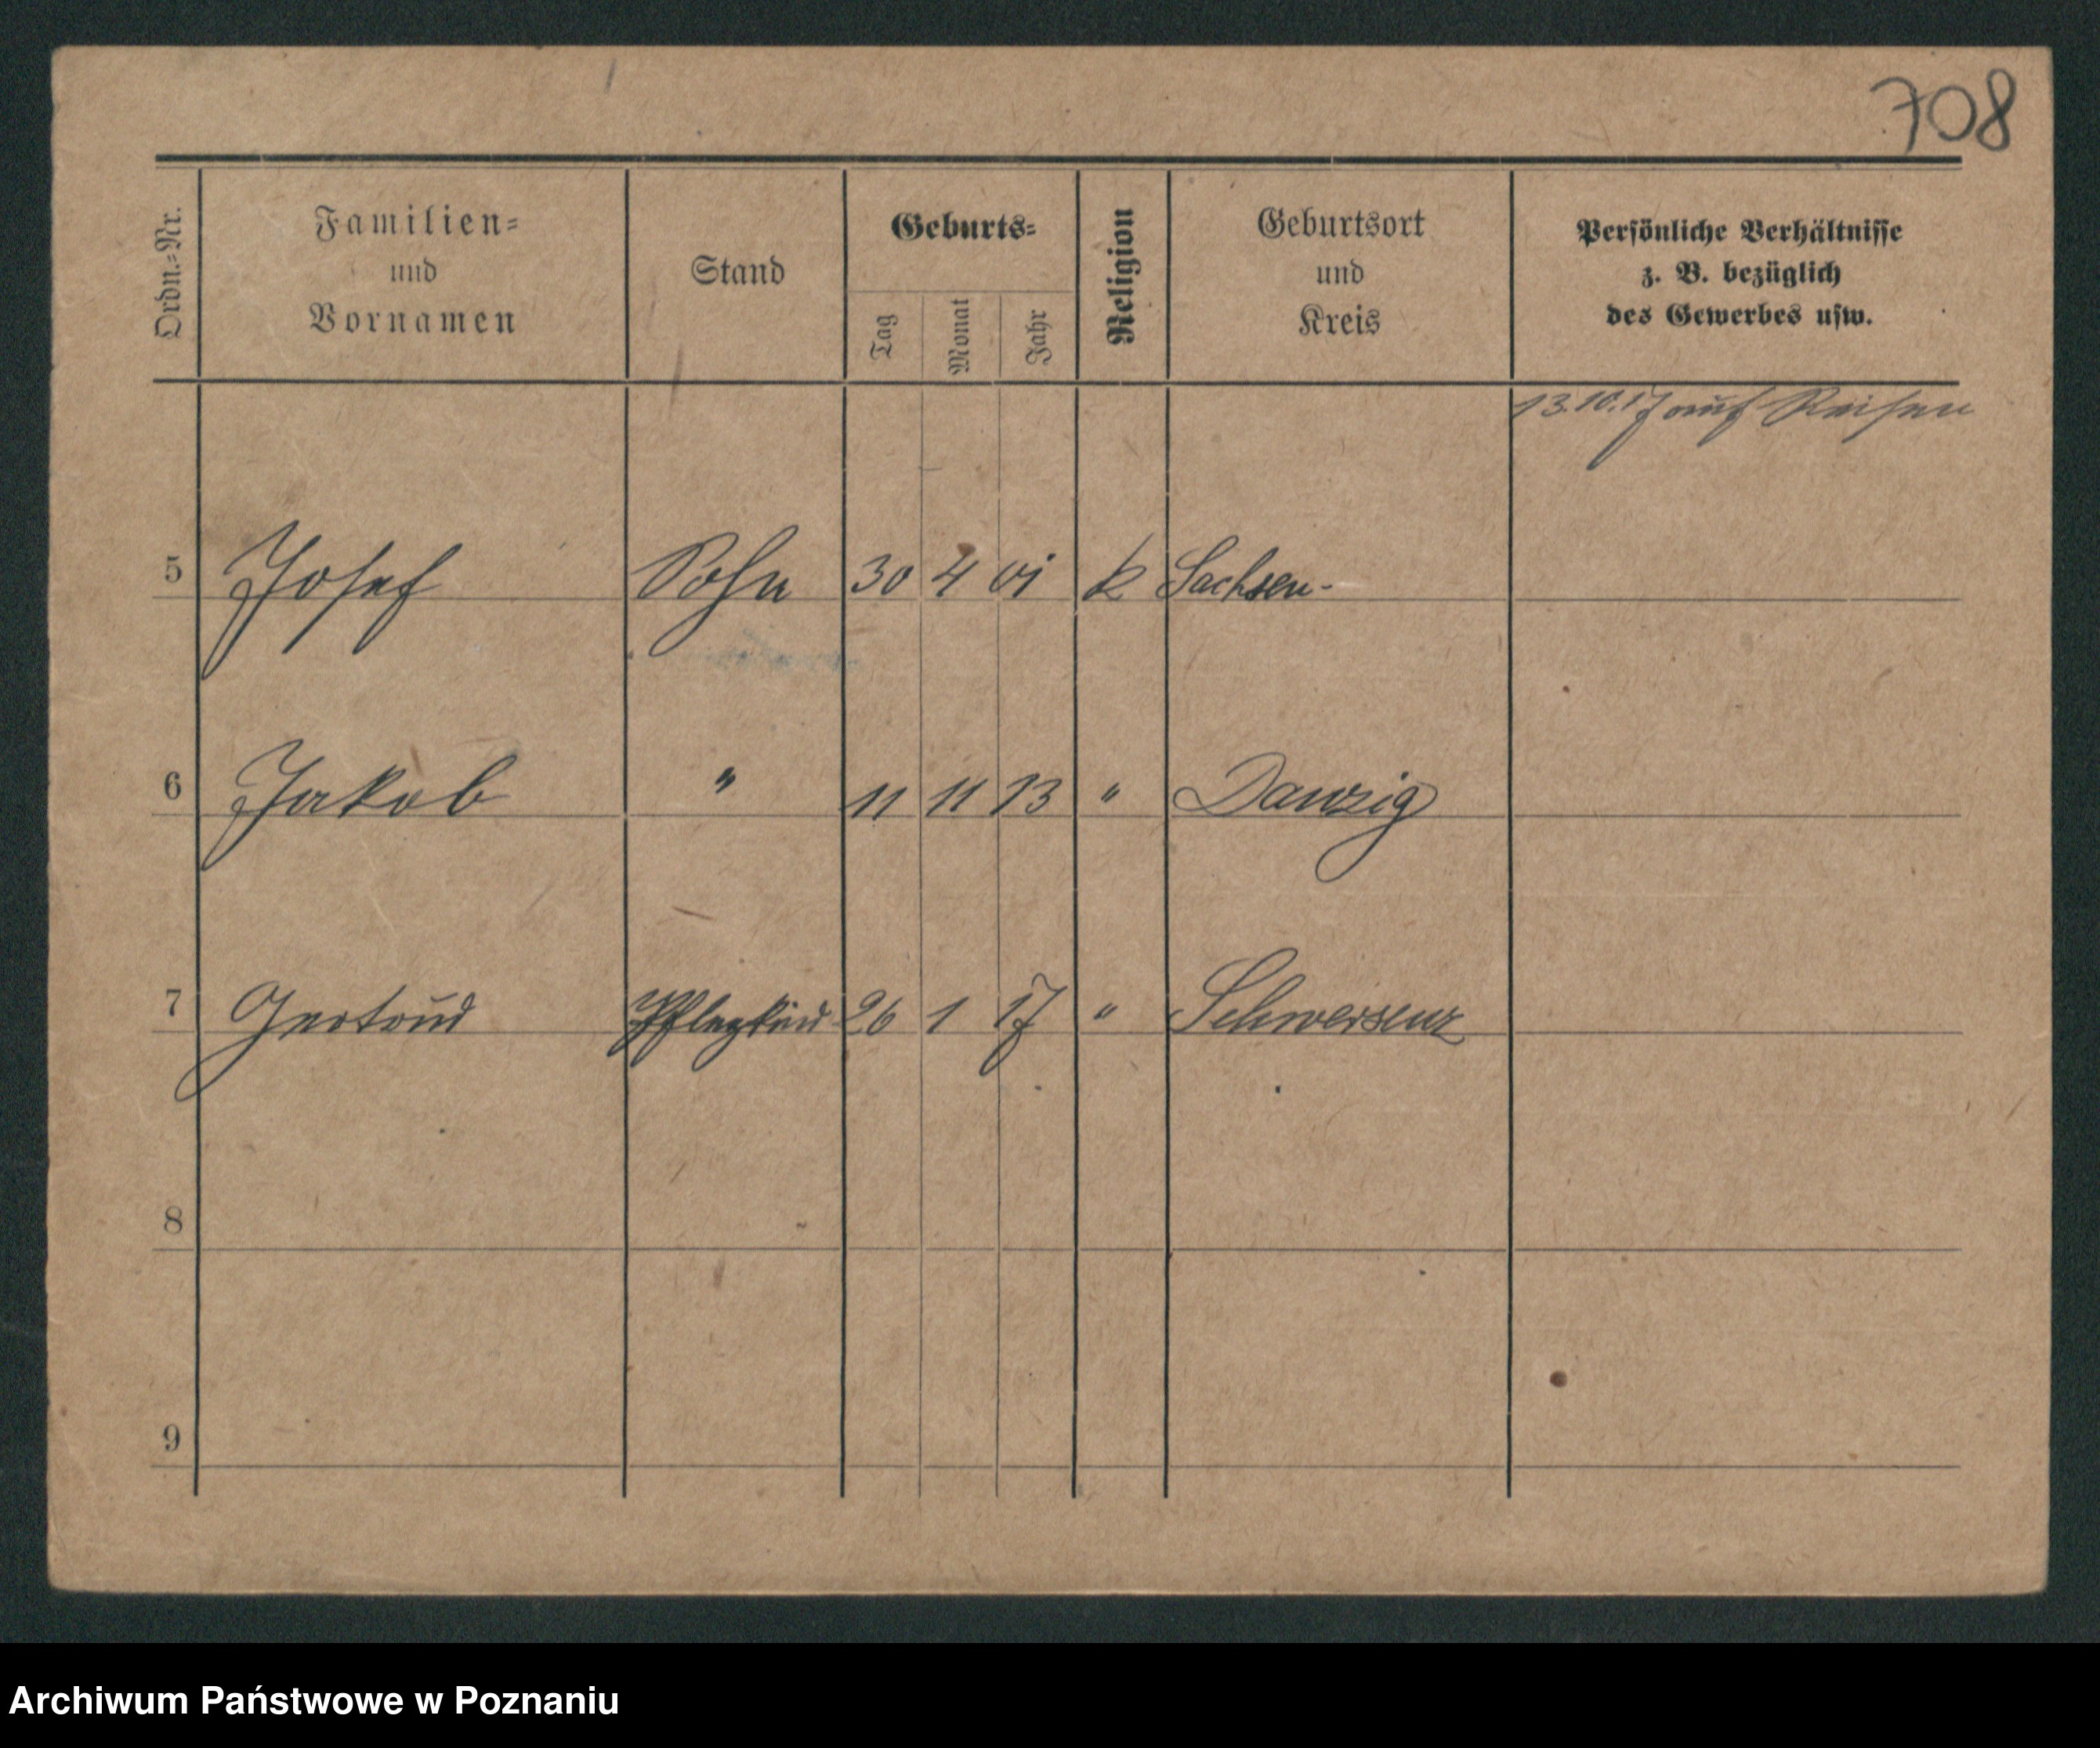 708
Ordn.-Nr. Familien= und Vornamen Stand Geburts= Tag Monat Jahr Religion Geburtsort und Kreis Persönliche Verhältnisse z. B. bezüglich des Gewerbes usw.
13.10.17 auf Reisen
5 Josef Sohn 30 4 01 k Sachsen-
6 Jakob " 11 11 13 " Danzig
7 Gertrud Pflegkind 26 1 17 " Schwersenz
8
9
Archiwum Państwowe w Poznaniu